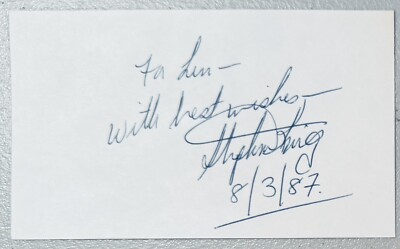 To Len—
with best wishes—
Stephen King
8/3/87.